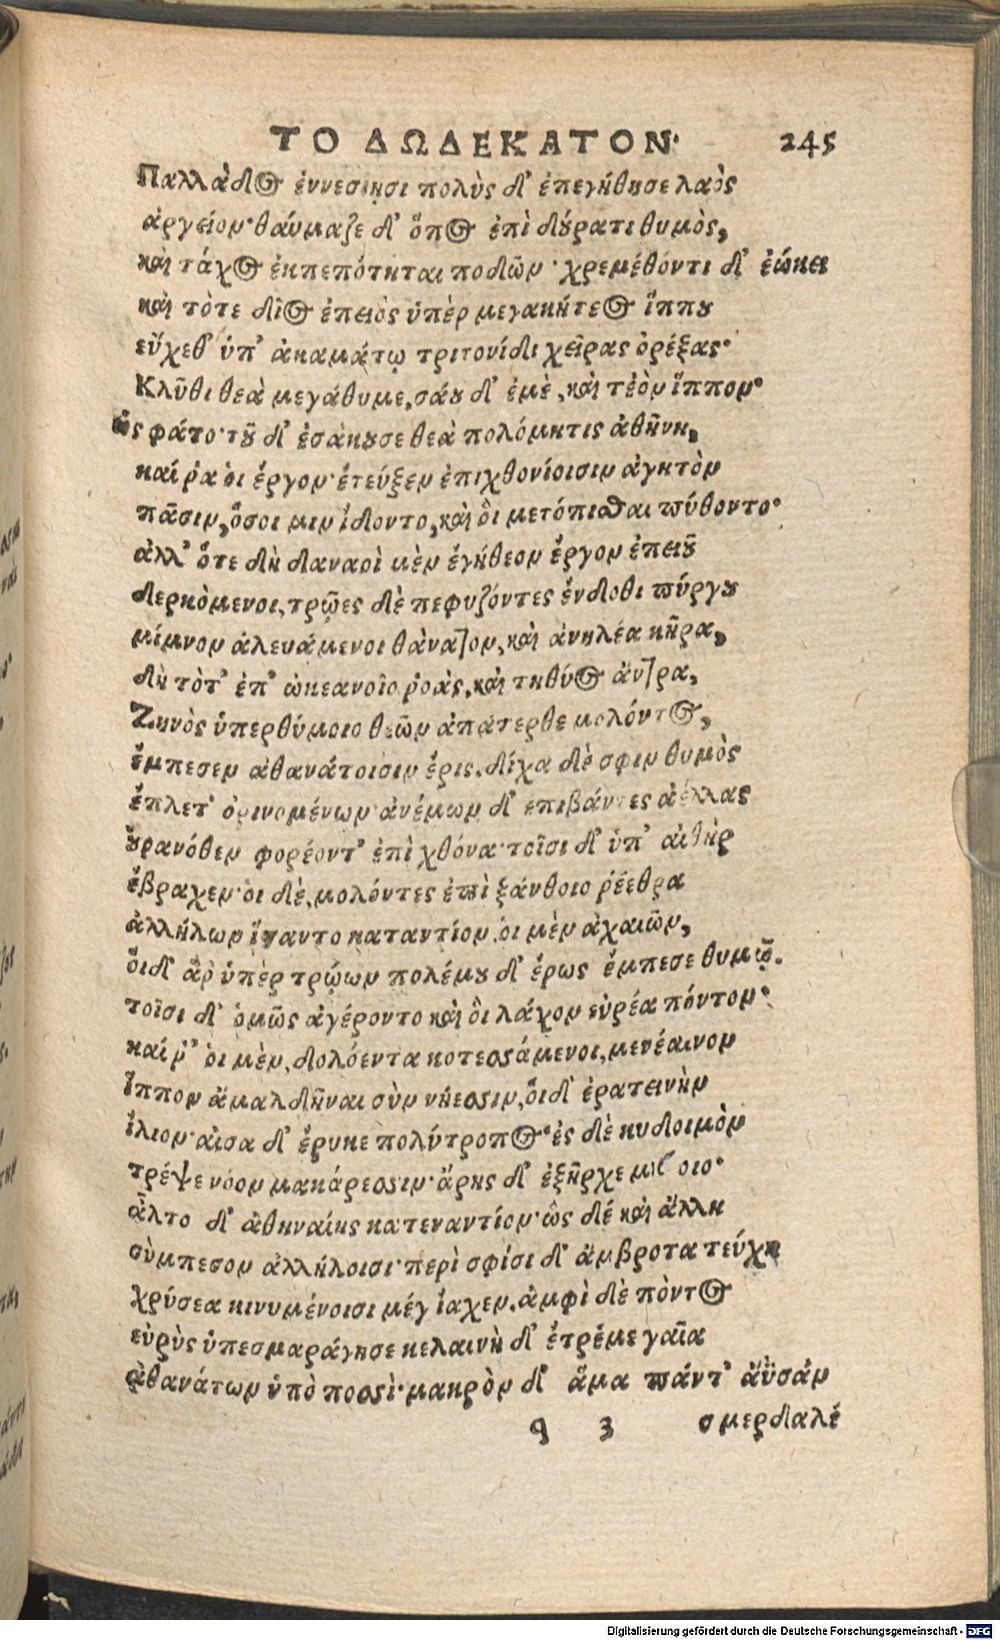 ΤΟ ΔΩΔΕΚΑΤΟΝ· 245
Παλλάδος ἐννεσίῃσι πολὺς δ' ἐπεγήθησε λαὸς
ἀργείον· θαύμαζε δ' ὅπος ἐπὶ δούρατι θυμὸς,
καὶ τάχος ἐκπεπότηται ποδῶν· χρεμέθοντι δ' ἐῴκει
καὶ τότε δῖος ἐπειὸς ὑπὲρ μεγακήτεος ἵππου
εὔχεθ' ὑπ' ἀκαμάτῳ τριτονίδι χεῖρας ὀρέξας·
Κλῦθι θεὰ μεγάθυμε, σάου δ' ἐμὲ, καὶ τεὸν ἵππον·
ὣς φάτο· τοῦ δ' ἐσάκουσε θεὰ πολόμητις ἀθήνη,
καί ῥα ὁι ἔργον· ἔτευξεν ἐπιχθονίοισιν ἀγητὸν
πᾶσιν, ὅσοι μιν ἴδοντο, καὶ ὃι μετόπισθαι πύθοντο·
ἀλλ' ὅτε δὴ δαναοὶ μὲν ἐγήθεον ἔργον ἐπειοῦ
δερκόμενοι, τρῶες δὲ πεφυζότες ἔνδοθι πύργου
μίμνον ἀλευάμενοι θάνατον, καὶ ἀνηλέα κῆρα,
δὴ τότ' ἐπ' ὠκεανοῖο ῥοὰς, καὶ τηθύος ἄντρα,
Ζηνὸς ὑπερθύμοιο θεῶν ἀπάτερθε μολόντος,
ἔμπεσεν ἀθανάτοισιν ἔρις. δίχα δέ σφιν θυμὸς
ἔπλετ' ὀρινομένων· ἀνέμων δ' ἐπιβάντες ἀέλλας
οὐρανόθεν φορέοντ' ἐπὶ χθόνα· τοῖσι δ' ὑπ' αἰθὴρ
ἔβραχεν· ὁι δὲ, μολόντες ἐπὶ ξάνθοιο ῥέεθρα
ἀλλήλων ἵσαντο καταντίον, ὁι μὲν ἀχαιῶν,
ὅιδ' ἂρ ὑπὲρ τρώων πολέμου δ' ἔρως ἔμπεσε θυμῷ.
τοῖσι δ' ὁμῶς ἀγέροντο καὶ ὃι λάχον εὐρέα πόντον·
καί ῥ' ὁι μὲν, δολόεντα κοτεσσάμενοι, μενέαινον
ἵππον ἀμαλδῆναι σὺν νήεσσιν, ὅιδ' ἐρατεινὴν
ἴλιον· αἶσα δ' ἔρυκε πολύτροπος· ἐς δὲ κυδοιμὸν
τρέψε νόον μακάρεσσιν· ἄρης δ' ἐξῆρχε μόθοιο·
ἆλτο δ' ἀθηναίης κατεναντίον· ὣς δέ καὶ ἄλλη
σύμπεσον ἀλλήλοισι· περὶ σφίσι δ' ἄμβροτα τεύχη
χρύσεα κινυμένοισι μέγ ἴαχεν. ἀμφὶ δὲ πόντος
εὐρὺς ὑπεσμαράγησε κελαινὴ δ' ἔτρεμε γαῖα
ἀθανάτων ὑπὸ ποσσὶ· μακρὸν δ' ἅμα πάντ' ἄϋσαν
q 3 σμερδαλέ
Digitalisierung gefördert durch die Deutsche Forschungsgemeinschaft - DFG